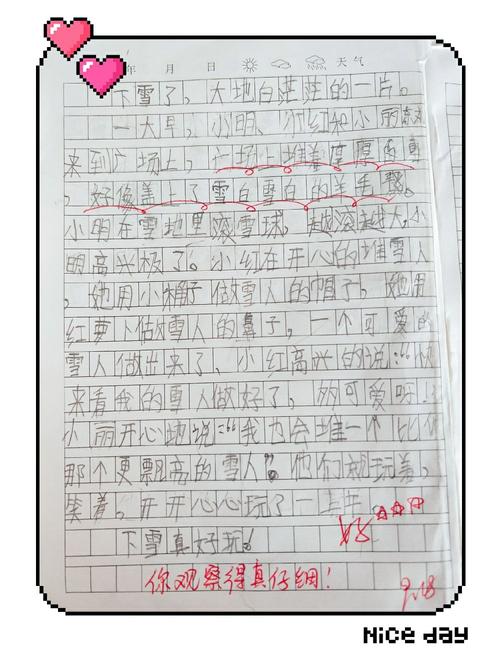 年 月 日 天气
下雪了，大地白茫茫的一片。
一大早，小明、小红和小丽就
来到广场上，广场上堆着厚厚的雪
，好像盖上了雪白雪白的羊毛毯。
小明在雪地里滚雪球，越滚越大，小
明高兴极了。小红在开心的堆雪人
，她用小桶子做雪人的帽子，她用
红萝卜做雪人的鼻子，一个可爱的
雪人做出来了，小红高兴的说：“你
来看我的雪人做好了，多可爱呀！”
小丽开心地说：“我也会堆一个比你
那个更飘亮的雪人”。他们都玩着，
笑着。开开心心玩了一上午。
好
下雪真好玩。
你观察得真仔细！
9.18
Nice day